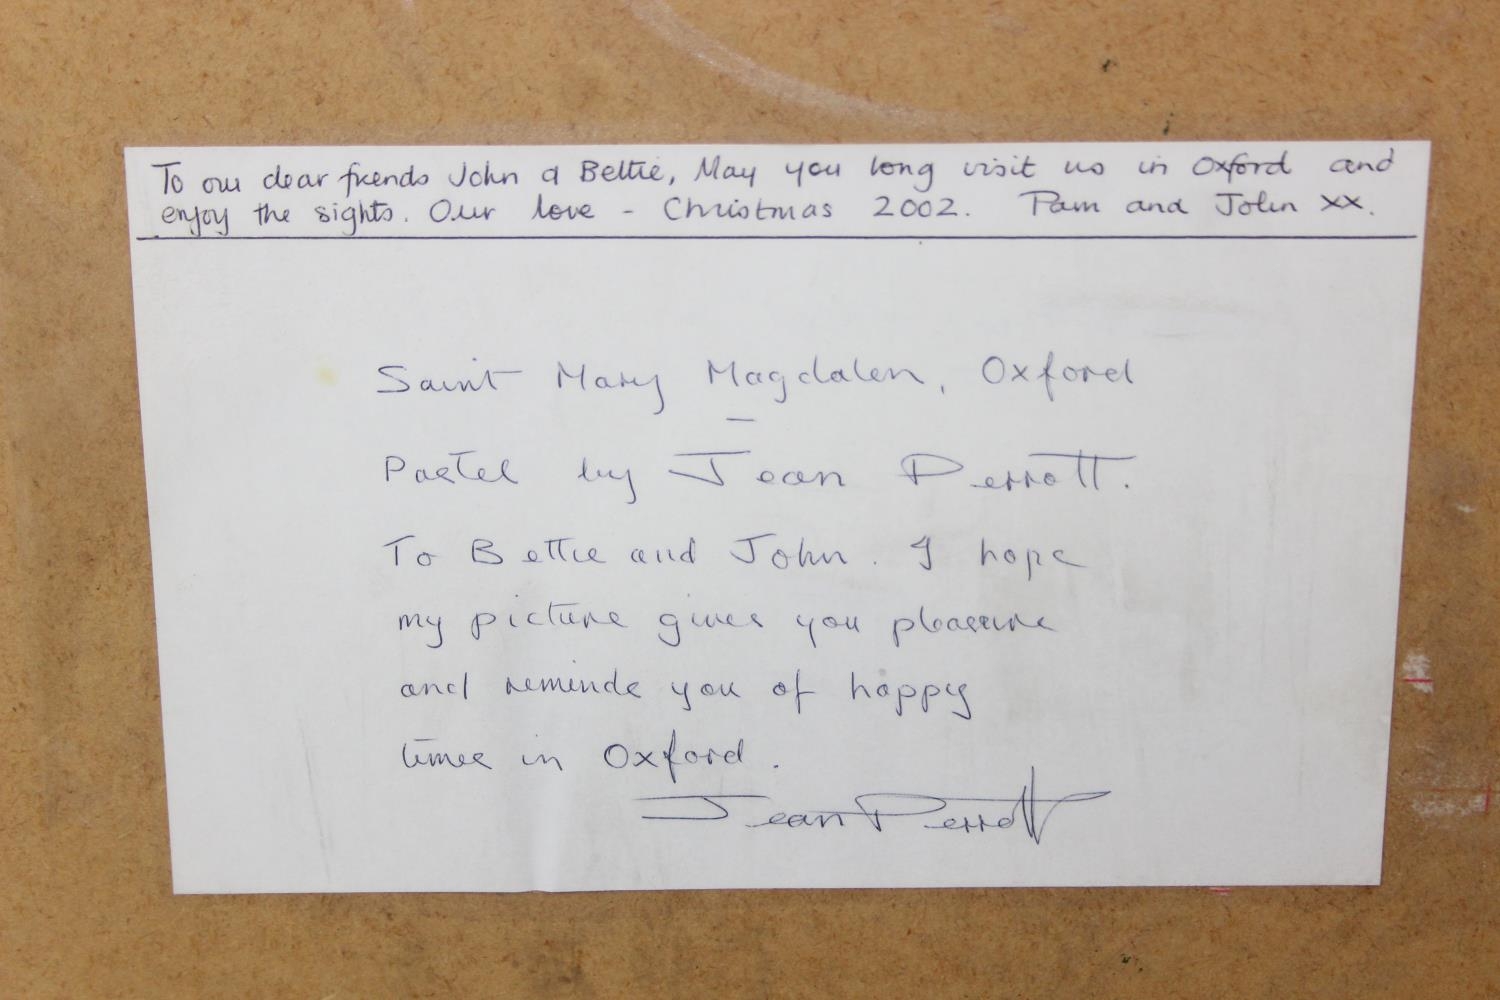 To our dear friends John & Bettie, May you long visit us in Oxford and
enjoy the sights. Our love - Christmas 2002. Pam and John xx.
Saint Mary Magdalen, Oxford
Pastel by Jean Perrott.
To Bettie and John. I hope
my picture gives you pleasure
and reminds you of happy
times in Oxford.
Jean Perrott